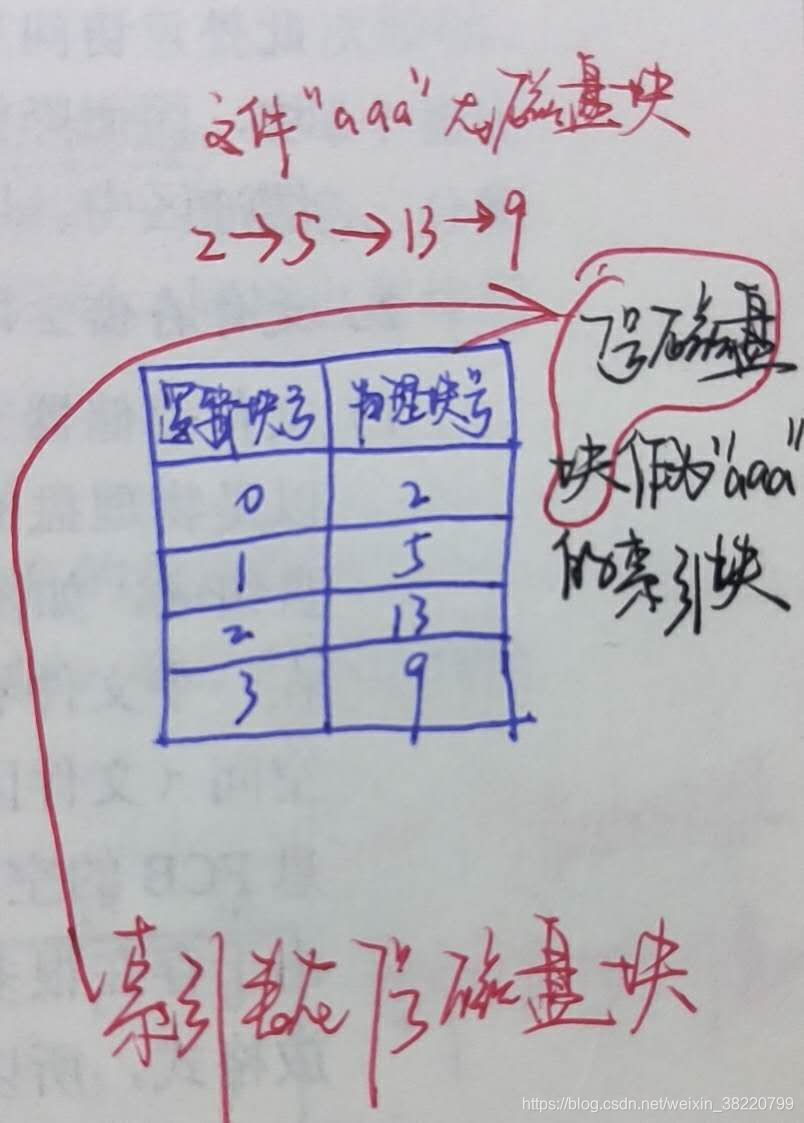 文件"aaa"在磁盘块
2→5→13→9
7号磁盘
块作为"aaa"
的索引块
逻辑块号 物理块号
0 2
1 5
2 13
3 9
索引表在7号磁盘块
https://blog.csdn.net/weixin_38220799